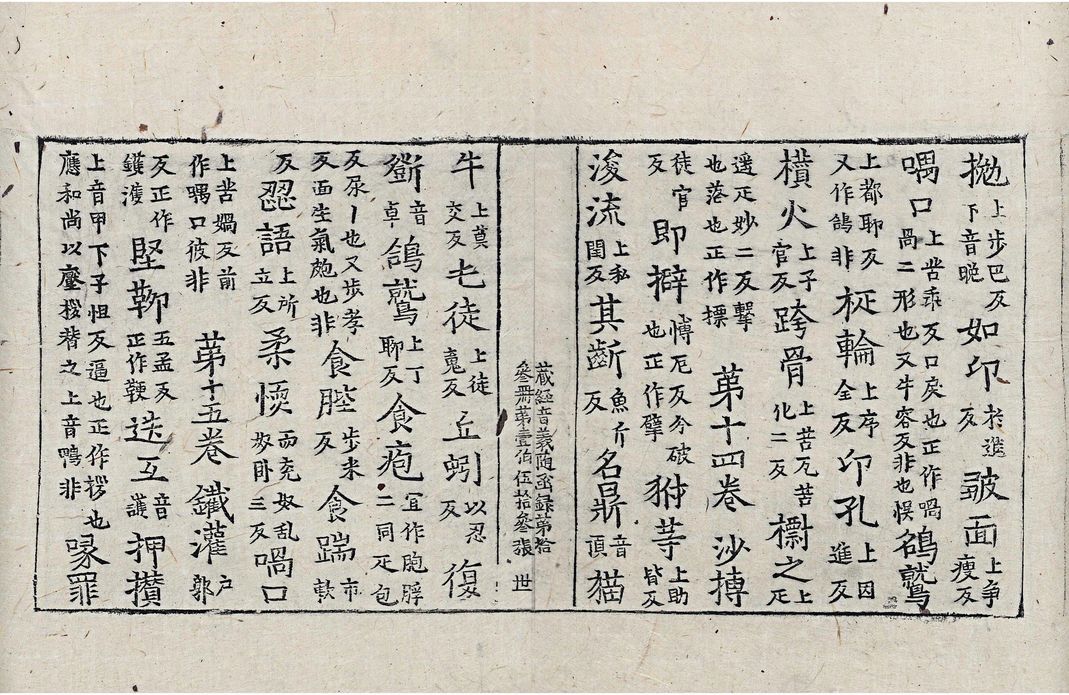 拋 上步巴反下音晚 如印 於進反 皺面 上爭瘦反
喎口 上苦乖反口戾也正作喎咼二形也又牛容反非也悮 鵮鷲
上都耶反又作鴿非 梴輪 上序全反 印孔 上因進反
樻火 上子官反 跨骨 上苦瓦苦化二反 擲之 上疋
遥疋妙二反擊也落也正作摽 第十四卷 沙摶
徒官反 即擗 愽厄反分破也正作擘 犲䓁 上助皆反
浚流 上私閏反 其齗 魚斤反 名鼎 音頂 猫
藏經音義隨函録第拾
叁冊第壹伯伍拾叁張 世
牛 上莫交反 𠦑徒 上徒䰟反 丘蚓 以忍反 復
斵 音卓 鴿鷲 上丁聊反 食疱 二同疋包
反尿丨也又步孝反面生氣皰也非 食䏶 步米反 食踹 市軟
反 𧫣語 上所立反 柔愞 而兖奴乱奴卧三反 喎口
上苦媧反前作喎口彼非 第十五卷 鐵灌 户郭
反正作鑊濩 堅靭 五孟反正作鞕 迭互 音護 押攢
上音甲下子怛反逼也正作桚也應和尚以壓桚替之上音鴨非 喙罪